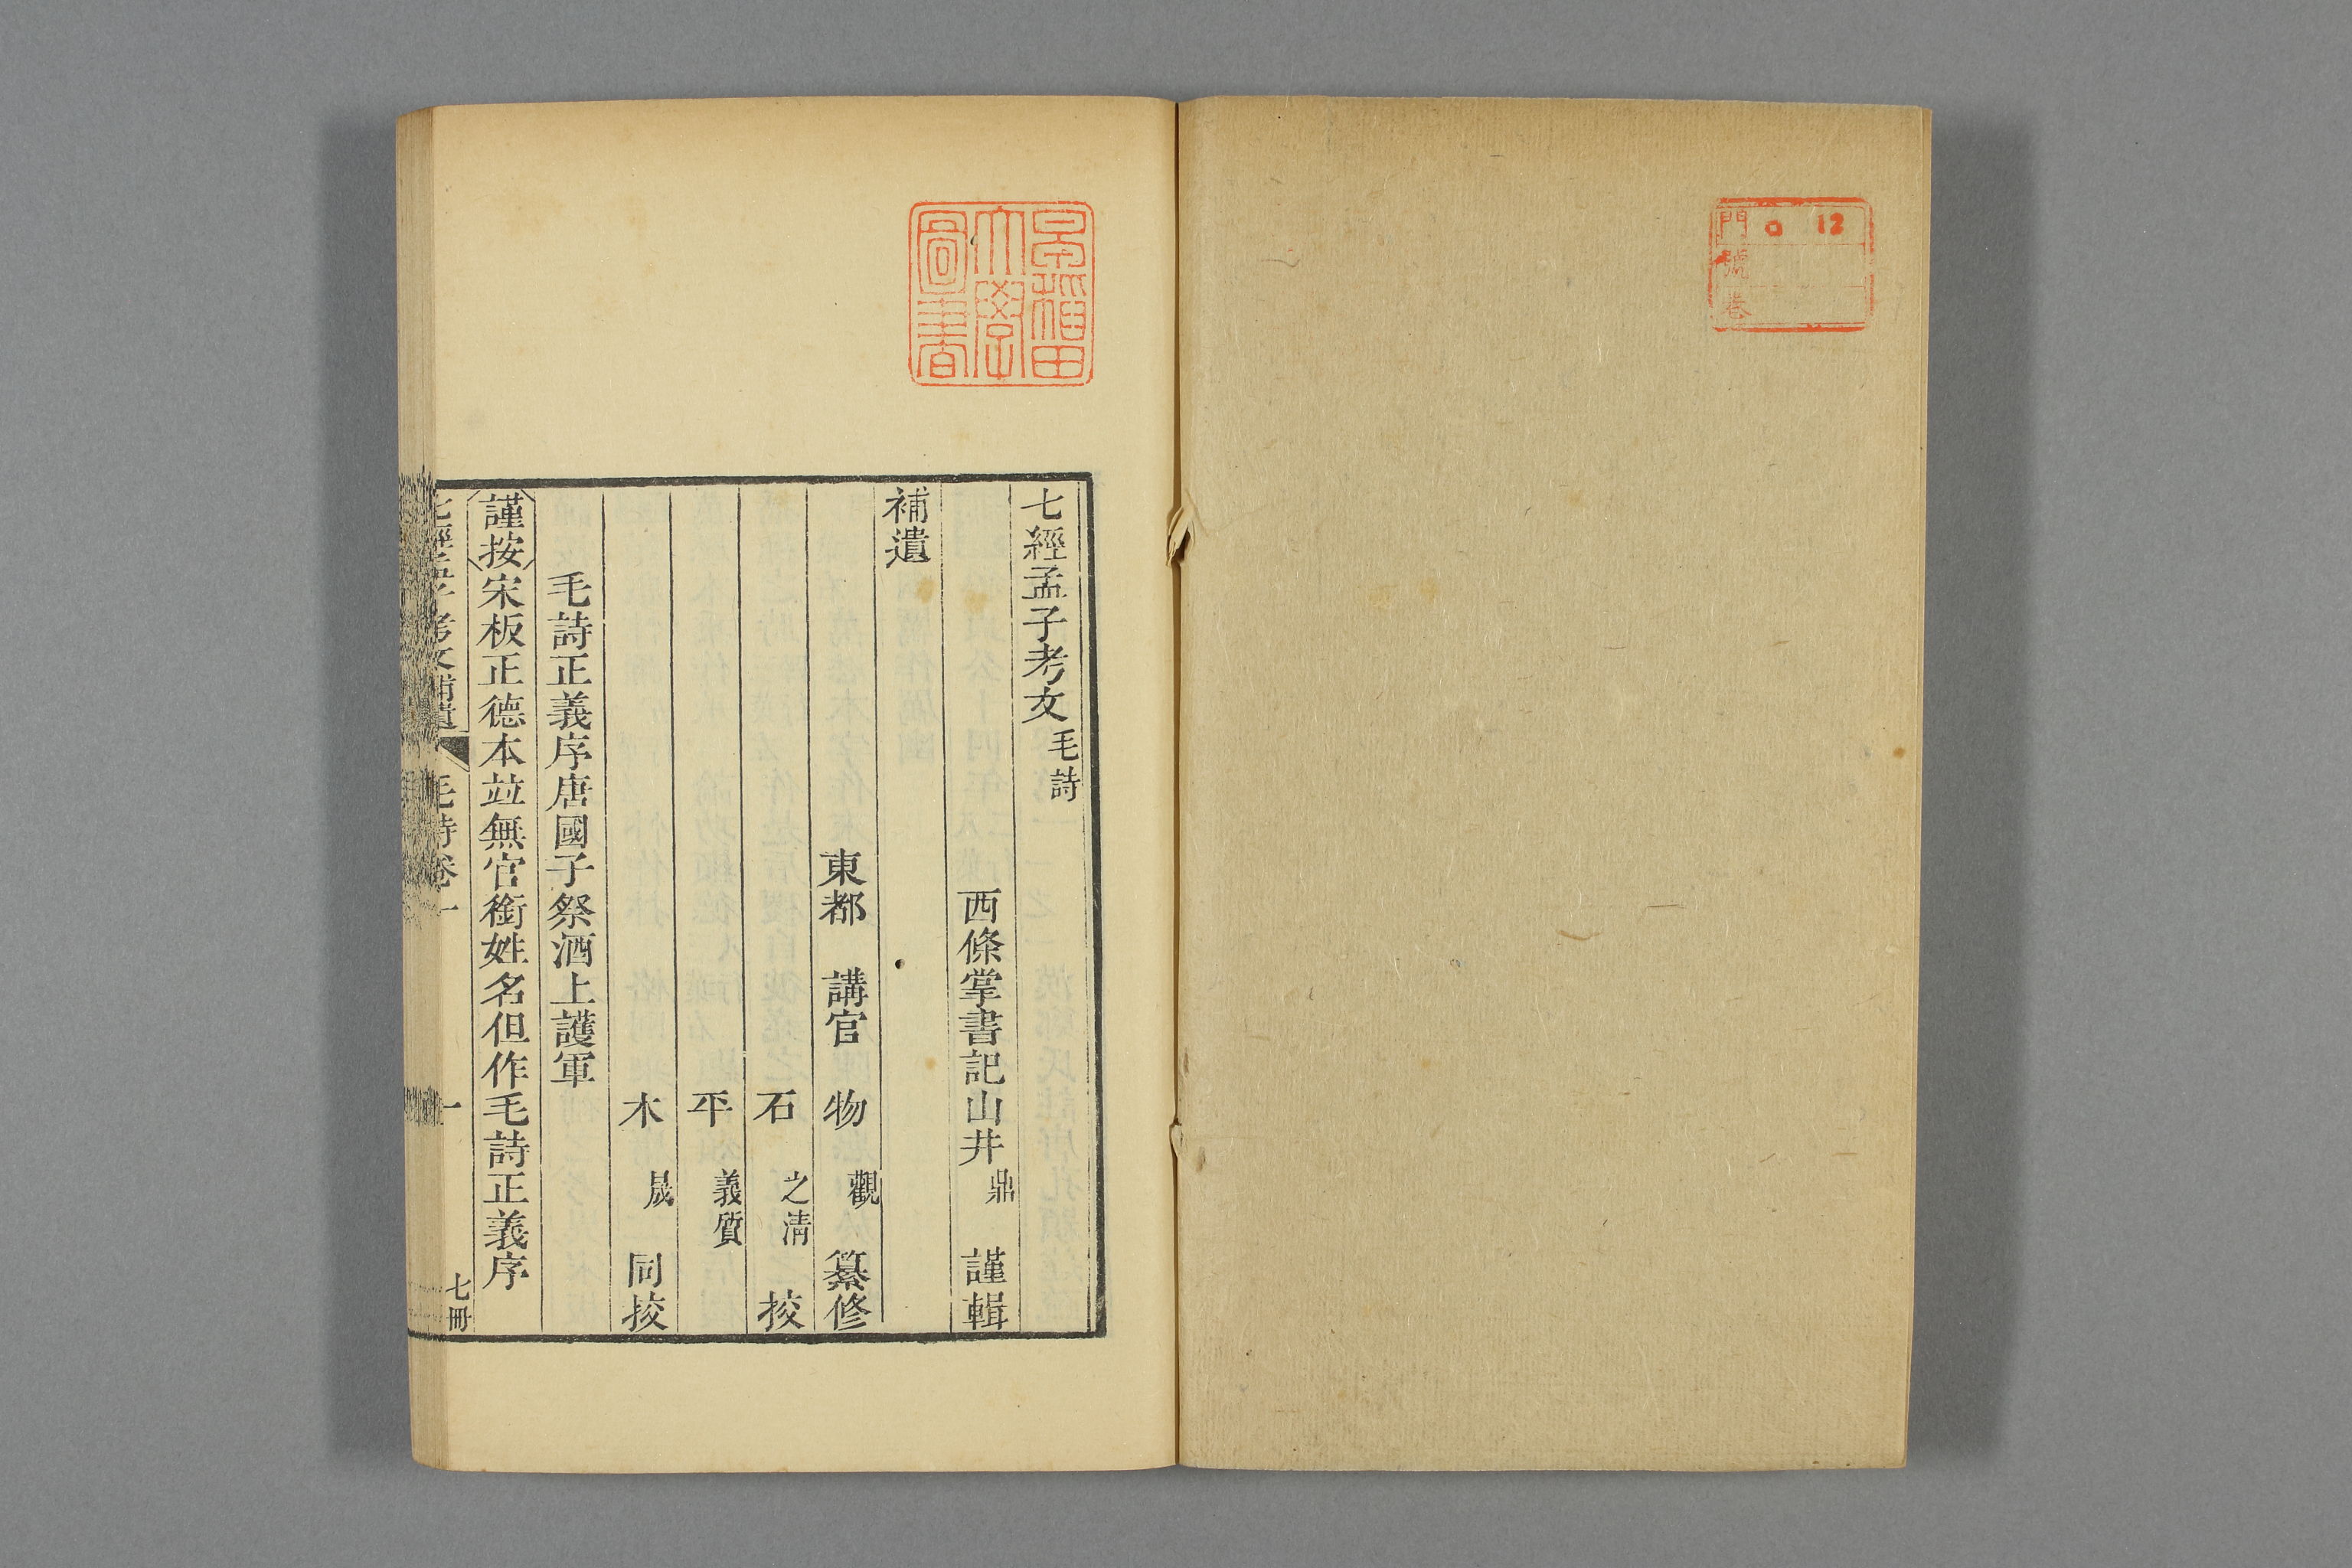 門 口 12
號
卷
早稲田
大學
圖書
七經孟子考文毛詩
西條掌書記山井鼎 謹輯
補遺
東都 講官 物觀 纂修
石之清 挍
平義質
木晟 同挍
毛詩正義序唐國子祭酒上護軍
謹按宋板正德本並無官銜姓名但作毛詩正義序
七經孟子考文補遺 毛詩卷一 一 七冊